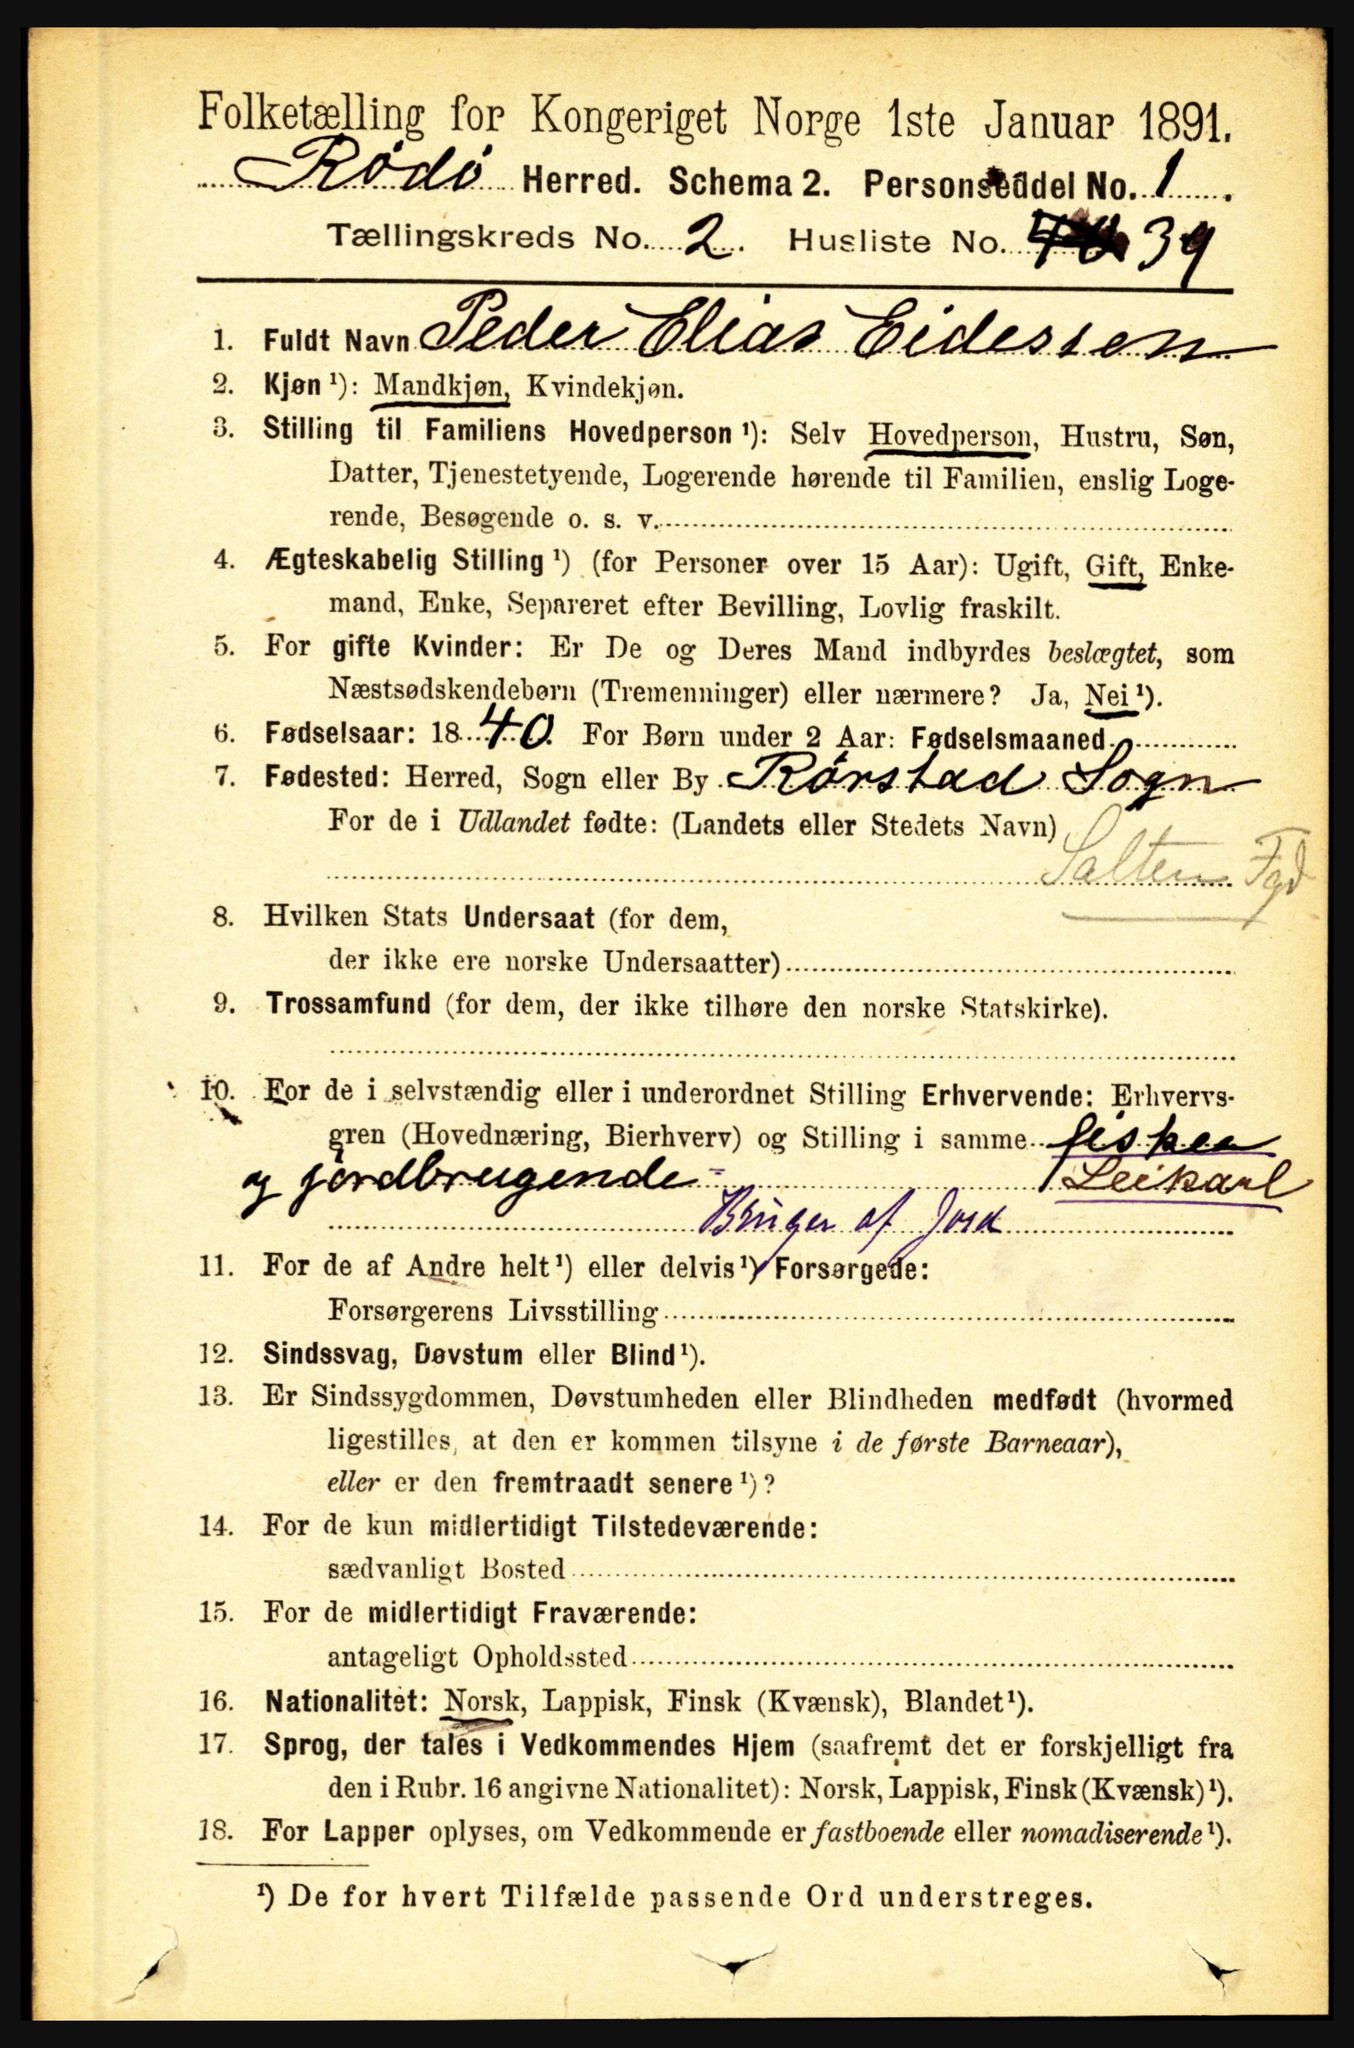 Folketælling for Kongeriget Norge 1ste Januar 1891.
Rödö Herred. Schema 2. Personseddel No. 1.
Tællingskreds No. 2. Husliste No. 40 39
1. Fuldt Navn Peder Elias Eidessen
2. Kjøn ¹): Mandkjøn, Kvindekjøn.
3. Stilling til Familiens Hovedperson ¹): Selv Hovedperson, Hustru, Søn,
Datter, Tjenestetyende, Logerende hørende til Familien, enslig Loge-
rende, Besøgende o. s. v.
4. Ægteskabelig Stilling ¹) (for Personer over 15 Aar): Ugift, Gift, Enke-
mand, Enke, Separeret efter Bevilling, Lovlig fraskilt.
5. For gifte Kvinder: Er De og Deres Mand indbyrdes beslægtet, som
Næstsødskendebørn (Tremenninger) eller nærmere? Ja, Nei ¹).
6. Fødselsaar: 1840. For Børn under 2 Aar: Fødselsmaaned
7. Fødested: Herred, Sogn eller By Rörstad Sogn
For de i Udlandet fødte: (Landets eller Stedets Navn)
Salten Fgd
8. Hvilken Stats Undersaat (for dem,
der ikke ere norske Undersaatter)
9. Trossamfund (for dem, der ikke tilhøre den norske Statskirke).
10. For de i selvstændig eller i underordnet Stilling Erhvervende: Erhvervs-
gren (Hovednæring, Bierhverv) og Stilling i samme fisker
og jordbrugende Leikarl
Bruger af Jord
11. For de af Andre helt ¹) eller delvis ¹) Forsørgede:
Forsørgerens Livsstilling
12. Sindssvag, Døvstum eller Blind ¹).
13. Er Sindssygdommen, Døvstumheden eller Blindheden medfødt (hvormed
ligestilles, at den er kommen tilsyne i de første Barneaar),
eller er den fremtraadt senere ¹)?
14. For de kun midlertidigt Tilstedeværende:
sædvanligt Bosted
15. For de midlertidigt Fraværende:
antageligt Opholdssted
16. Nationalitet: Norsk, Lappisk, Finsk (Kvænsk), Blandet ¹).
17. Sprog, der tales i Vedkommendes Hjem (saafremt det er forskjelligt fra
den i Rubr. 16 angivne Nationalitet): Norsk, Lappisk, Finsk (Kvænsk) ¹).
18. For Lapper oplyses, om Vedkommende er fastboende eller nomadiserende ¹).
¹) De for hvert Tilfælde passende Ord understreges.